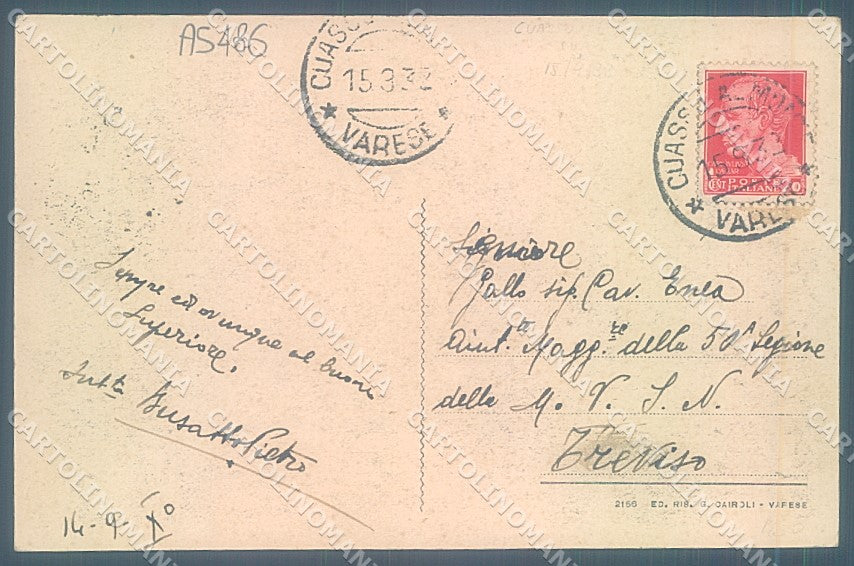 A5486
CUASSO
15.9.32
VARESE
CUASSO AL MONTE
15
VARESE
CENT POSTE ITALIANE 20
Sempre ed ovunque al buon
Superiore.
Busatto Pietro
14-9-X°
Signore
Gallo sig. Cav. Enea
Aiut.te Magg.re della 50ª Legione
della M. V. S. N.
Treviso
2156 ED. RIS. G. CAIROLI - VARESE
CARTOLINOMANIA